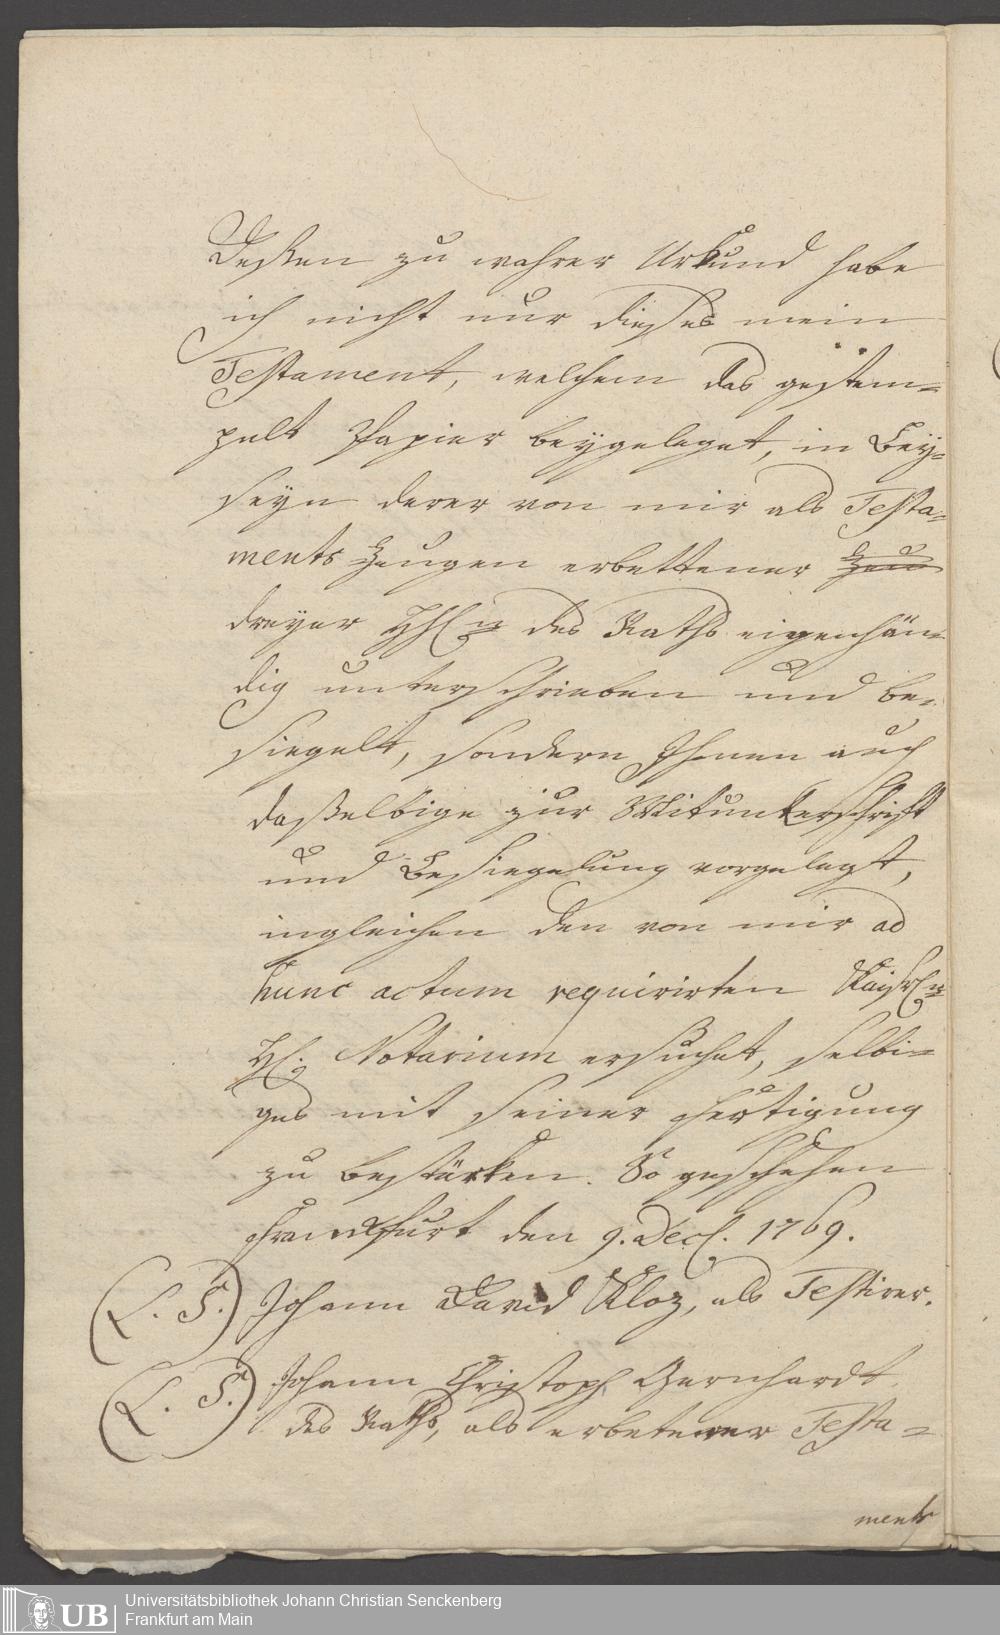 Deßen zu wahrer Urkund habe
ich nicht nur dieses mein
Testament, welchem das gestem=
pelt Papier beygeleget, in Bey=
seyn derer von mir als Testa=
ments Zeugen erbettener Zeu
dreyer des Raths eigenhän=
dig unterschrieben und be=
siegelt, sondern Ihnen auch
daßelbige zur Mitunterschrift
und Besiegelung vorgelegt,
ingleichen den von mir ad
hunc actum requirirten Kayserl.n
H. Notarium ersuchet, selbi=
ges mit seiner Fertigung
zu bestärken. So geschehen
Franckfurt den 9. Dec. 1769.
(L. S.) Johann David Kloz, als Testirer.
(L. S.) Johann Christoph Gernhardt
des Raths, als erbetener Testa=
ments
Universitätsbibliothek Johann Christian Senckenberg
Frankfurt am Main
UB